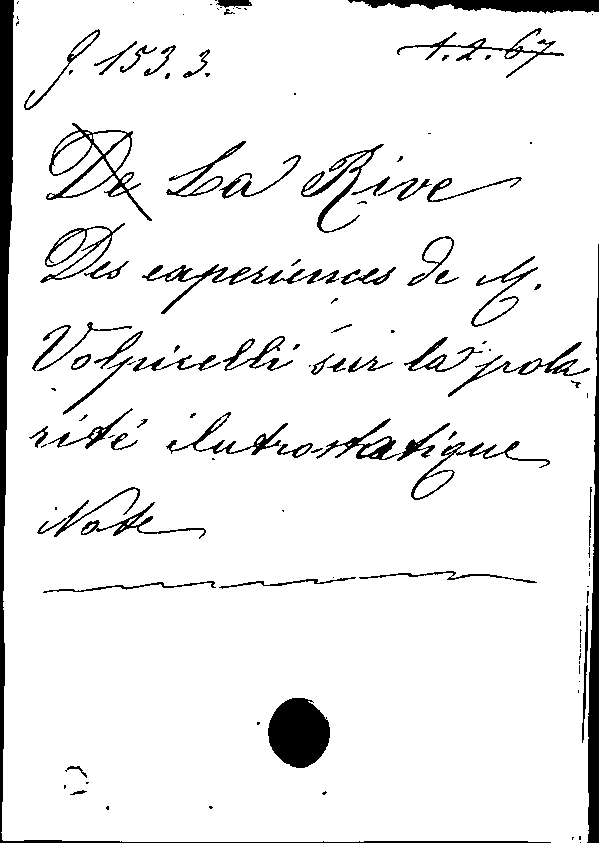 J. 153.3. 1.2.67
De La Rive
Des experiences de M.
Volpicelli sur la pola-
rité électrostatique
Note